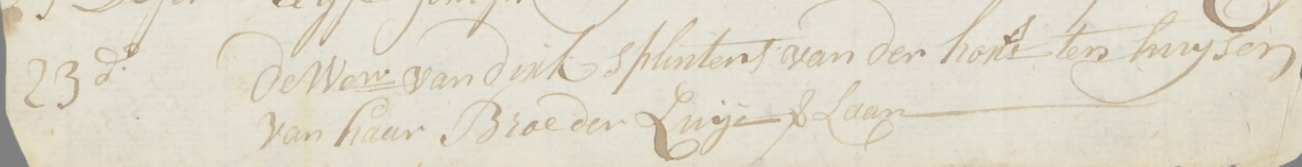 23 d:o de Wew van dirk splinters van der horst ten huysen
van haar Broeder Luije Laan